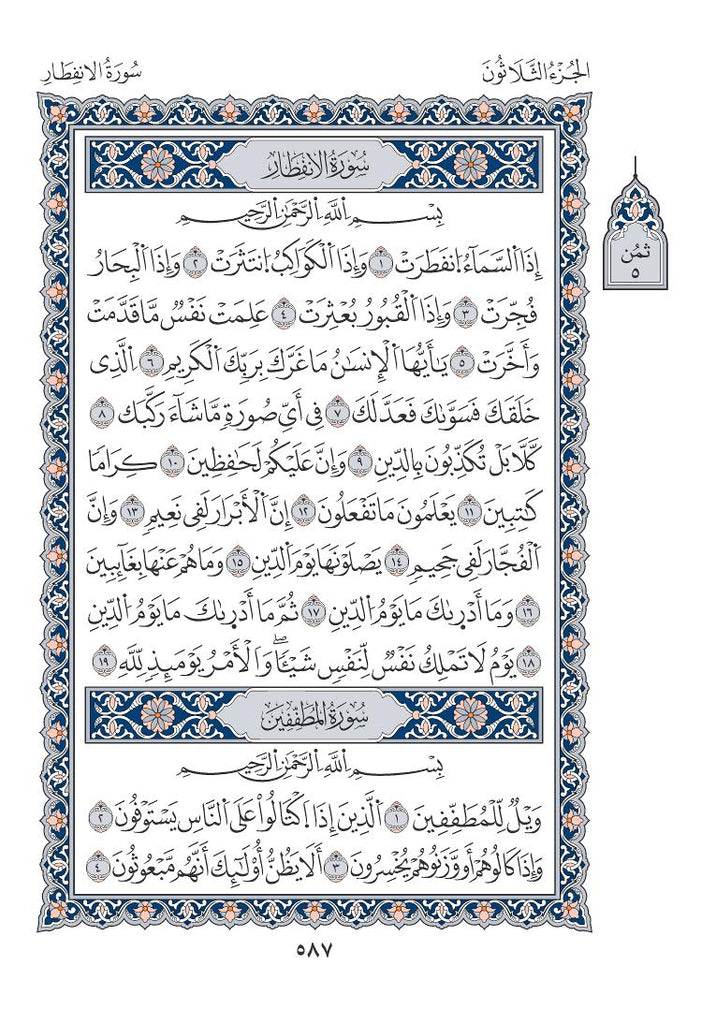 سُورَةُ الِانفِطَارِ
الجُزْءُ الثَّلَاثُونَ
سُورَةُ الِانفِطَارِ
بِسْمِ ٱللَّهِ ٱلرَّحْمَٰنِ ٱلرَّحِيمِ
ثُمُن
٥
إِذَا ٱلسَّمَآءُ ٱنفَطَرَتْ ١ وَإِذَا ٱلْكَوَاكِبُ ٱنتَثَرَتْ ٢ وَإِذَا ٱلْبِحَارُ
فُجِّرَتْ ٣ وَإِذَا ٱلْقُبُورُ بُعْثِرَتْ ٤ عَلِمَتْ نَفْسٌ مَّا قَدَّمَتْ
وَأَخَّرَتْ ٥ يَٰٓأَيُّهَا ٱلْإِنسَٰنُ مَا غَرَّكَ بِرَبِّكَ ٱلْكَرِيمِ ٦ ٱلَّذِى
خَلَقَكَ فَسَوَّىٰكَ فَعَدَلَكَ ٧ فِىٓ أَىِّ صُورَةٍ مَّا شَآءَ رَكَّبَكَ ٨
كَلَّا بَلْ تُكَذِّبُونَ بِٱلدِّينِ ٩ وَإِنَّ عَلَيْكُمْ لَحَٰفِظِينَ ١٠ كِرَامًا
كَٰتِبِينَ ١١ يَعْلَمُونَ مَا تَفْعَلُونَ ١٢ إِنَّ ٱلْأَبْرَارَ لَفِى نَعِيمٍ ١٣ وَإِنَّ
ٱلْفُجَّارَ لَفِى جَحِيمٍ ١٤ يَصْلَوْنَهَا يَوْمَ ٱلدِّينِ ١٥ وَمَا هُمْ عَنْهَا بِغَآئِبِينَ
١٦ وَمَآ أَدْرَىٰكَ مَا يَوْمُ ٱلدِّينِ ١٧ ثُمَّ مَآ أَدْرَىٰكَ مَا يَوْمُ ٱلدِّينِ
١٨ يَوْمَ لَا تَمْلِكُ نَفْسٌ لِّنَفْسٍ شَيْـًٔا ۖ وَٱلْأَمْرُ يَوْمَئِذٍ لِّلَّهِ ١٩
سُورَةُ المُطَفِّفِينَ
بِسْمِ ٱللَّهِ ٱلرَّحْمَٰنِ ٱلرَّحِيمِ
وَيْلٌ لِّلْمُطَفِّفِينَ ١ ٱلَّذِينَ إِذَا ٱكْتَالُوا۟ عَلَى ٱلنَّاسِ يَسْتَوْفُونَ ٢
وَإِذَا كَالُوهُمْ أَو وَّزَنُوهُمْ يُخْسِرُونَ ٣ أَلَا يَظُنُّ أُو۟لَٰٓئِكَ أَنَّهُم مَّبْعُوثُونَ ٤
٥٨٧